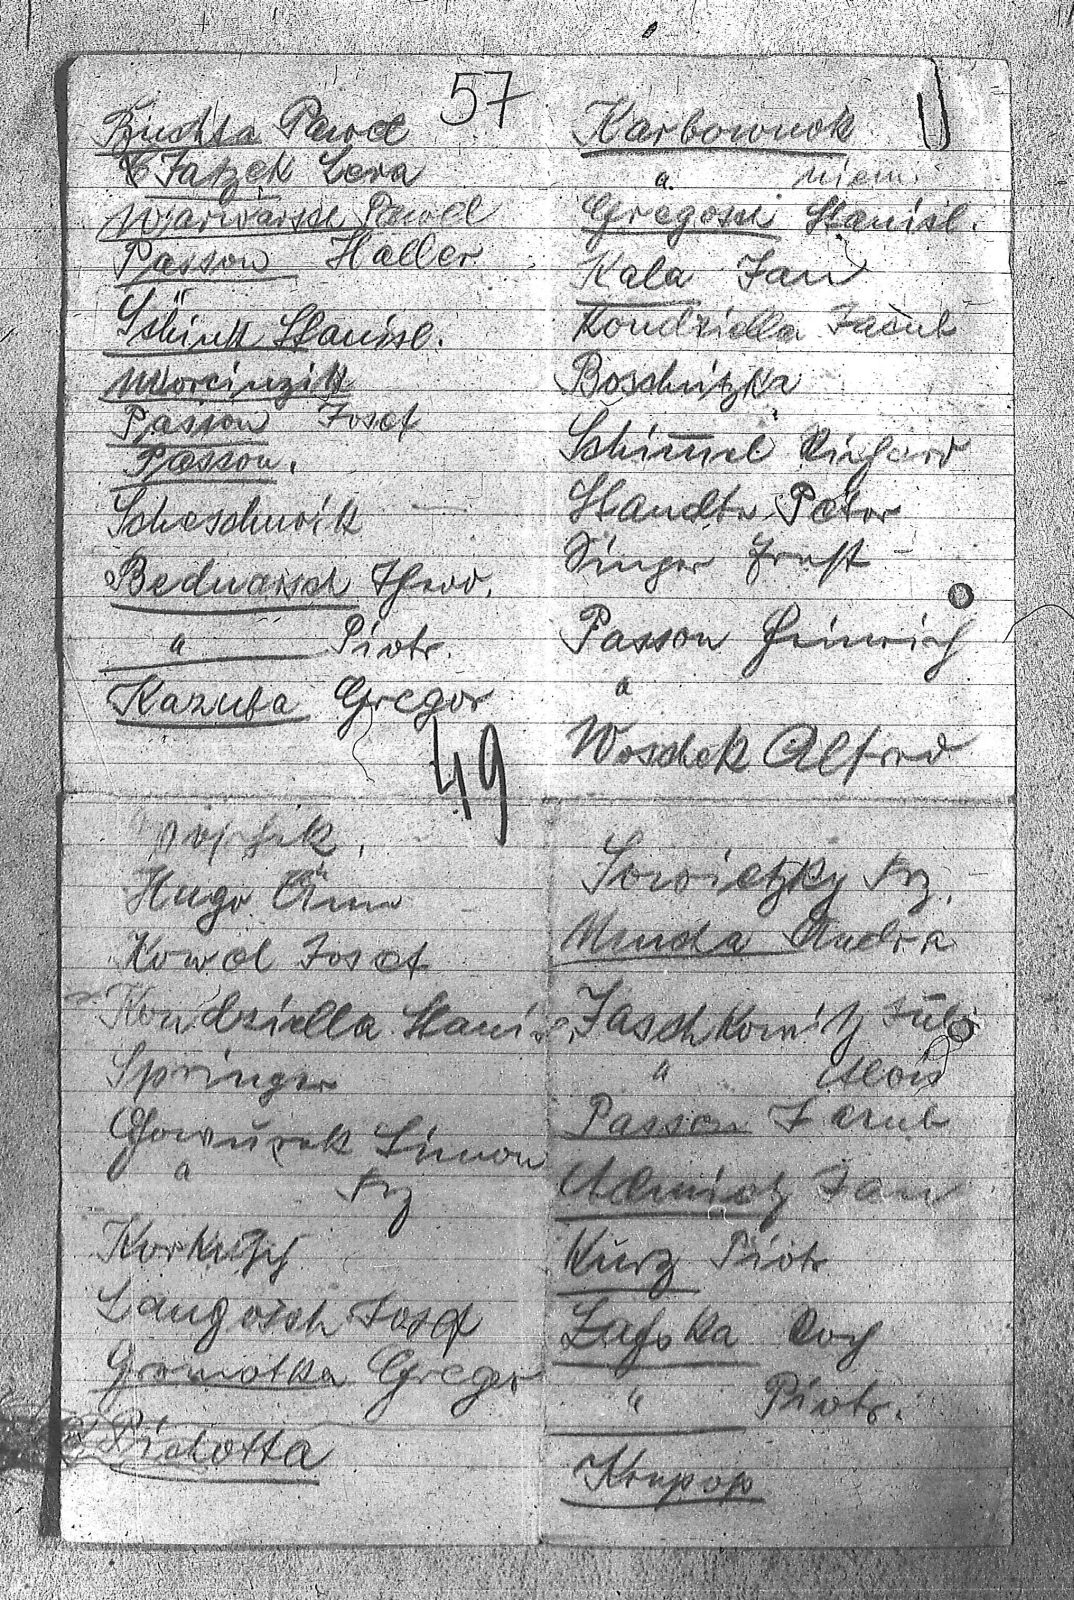 57
Buchta Pawel
Jatzek Lera
Warwarsch Pawel
Passon Haller
Schink Stanisl.
Marcinzik
Passon Josef
Passon.
Scheschwik
Bednarsch Theod.
" Piotr.
Kazuba Gregor
Karbownok
" niem.
Gregosch Stanisl.
Kala Jan
Kondziella Jacub
Boschitzka
Schimmel Richard
Standtn Peter
Singer Ernst
Passon Heinrich
"
Woschek Alfred
49
Hugo
Kowol Josef
Kondziella Stanisl.
Springer
Gowurek Simon
" Frz
Korkisch
Langosch Josef
Gramotka Gregor
Pichotta
Sowietzky Frz.
Mucha Andra
Jaschkowitz Jul.
" Alois
Passon Jacub
Adamietz Jan
Kurz Piotr
Zafska Roch
" Piotr.
Krupop